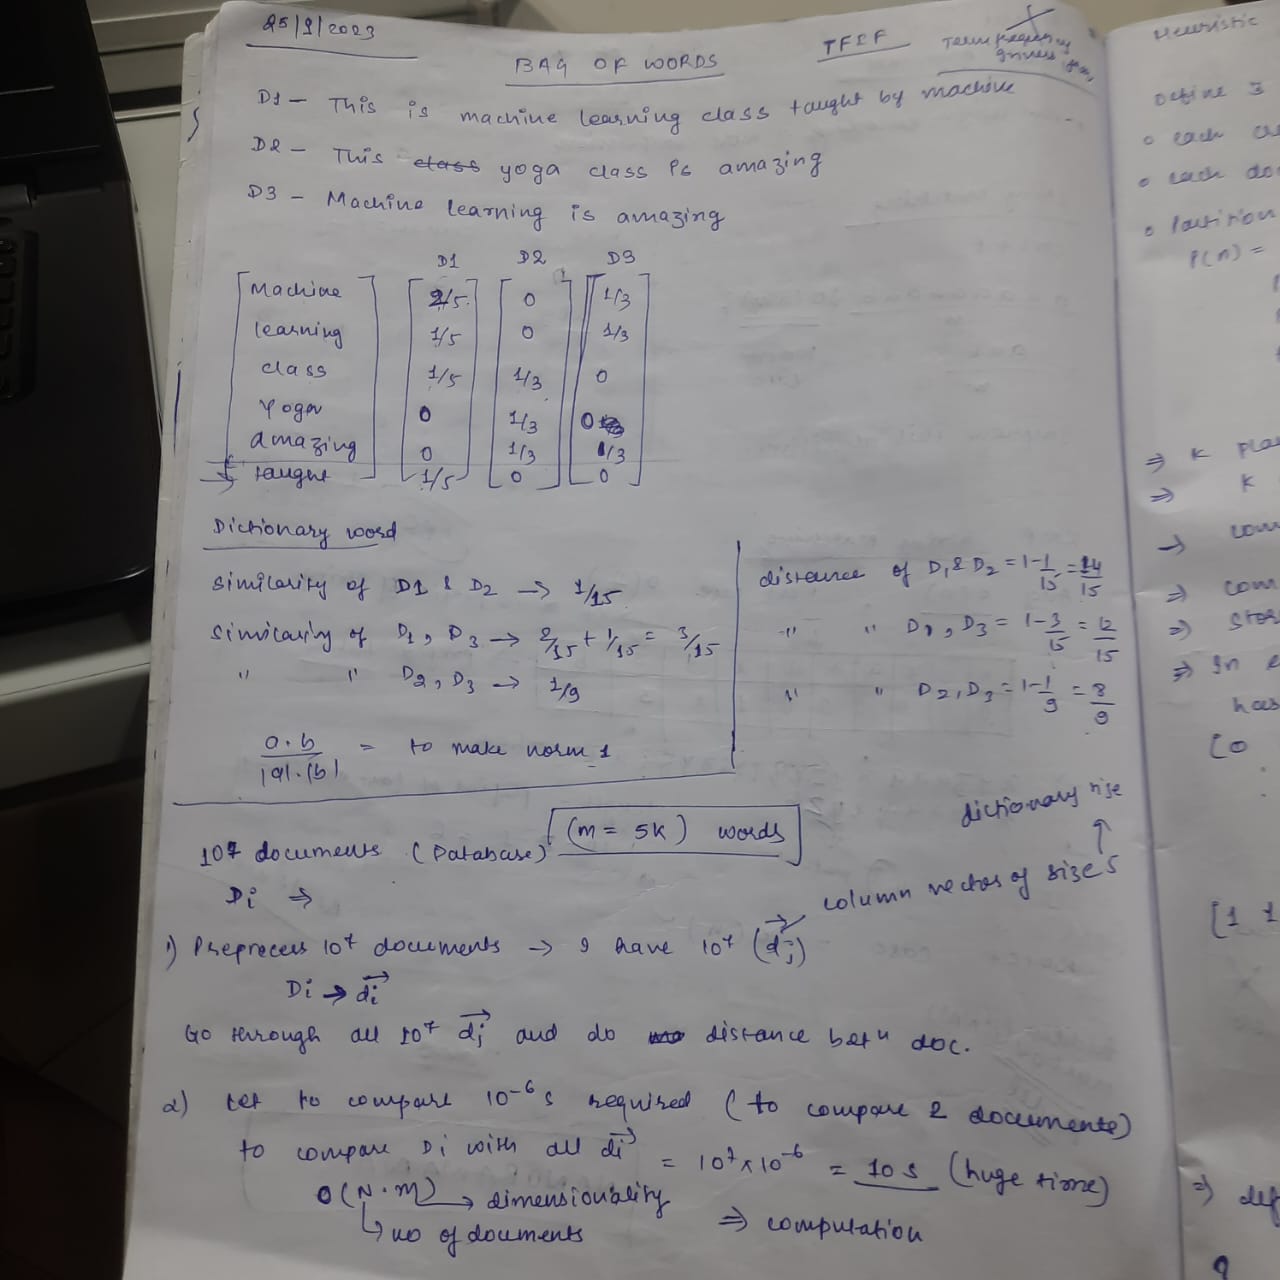 25/9/2023
BAG OF WORDS
TFIF
Term frequency
D1 – This is machine learning class taught by machine
D2 – This class yoga class is amazing
D3 – Machine learning is amazing
D1 D2 D3
Machine 2/5 0 1/3
learning 1/5 0 1/3
class 1/5 1/3 0
Yoga 0 1/3 0
amazing 0 1/3 1/3
→ taught 1/5 0 0
Dictionary word
Similarity of D1 & D2 → 1/15
Similarity of D1, D3 → 2/15 + 1/15 = 3/15
" " D2, D3 → 1/9
a.b / |a|.|b| = to make norm 1
distance of D1 & D2 = 1-1/15 = 14/15
" " D1, D3 = 1-3/15 = 12/15
" " D2, D3 = 1-1/9 = 8/9
10⁷ documents (Database) (m = 5K) words
Di ⇒
dictionary
column vector of size
1) Preprocess 10⁷ documents → I have 10⁷ (di)
Di → di
Go through all 10⁷ di and do distance betⁿ doc.
2) Let to compare 10⁻⁶ s required (to compare 2 documents)
to compare Di with all di = 10⁷ x 10⁻⁶ = 10 s (huge time)
O(N.m) → dimensionality ⇒ computation
↳ no of douments
Heuristic
Define 3
o each
o each
P(n) =
⇒ K
⇒ K
→
⇒
⇒
⇒ In
has
[0
[1 1
⇒ def